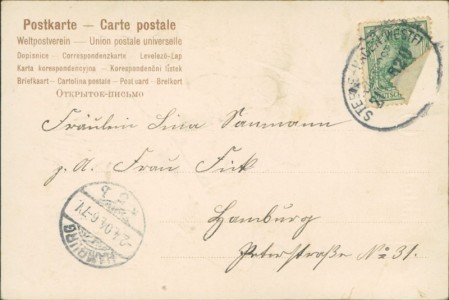 Postkarte — Carte postale
Weltpostverein — Union postale universelle
Dopisnice — Correspondenzkarte — Levelező-Lap
Karta korespondencyjna — Korespondenční lístek
Briefkaart — Cartolina postale — Post card — Brefkort
Открытое-письмо
Fräulein Lina Sanmann
p. A. Frau Fick
Hamburg
Peterstraße No 31.
HAMBURG
2.4.04. 6-7 V.